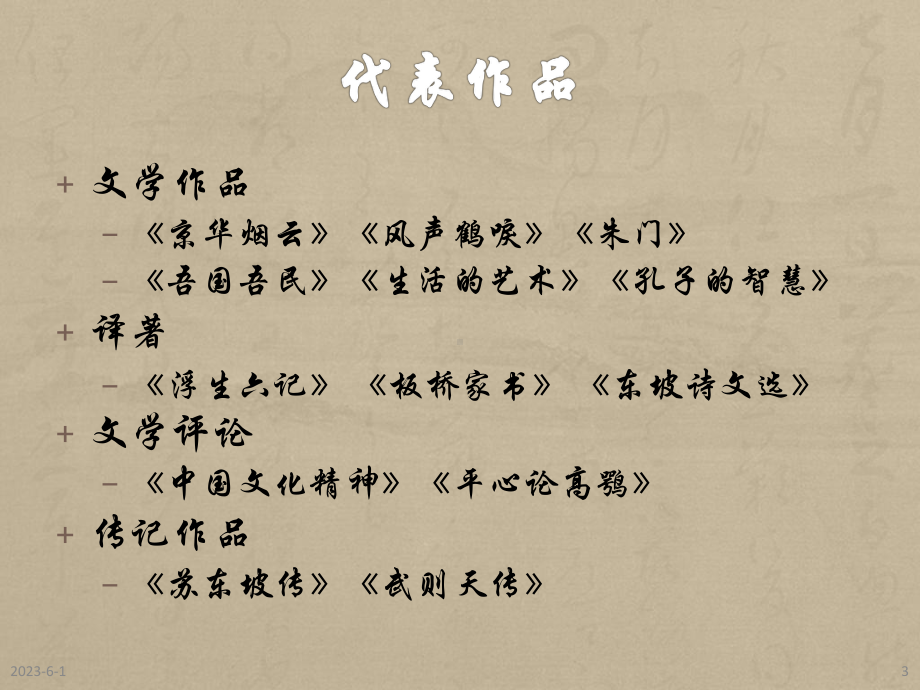 代表作品
+ 文学作品
– 《京华烟云》《风声鹤唳》《朱门》
– 《吾国吾民》《生活的艺术》《孔子的智慧》
+ 译著
– 《浮生六记》 《板桥家书》 《东坡诗文选》
+ 文学评论
– 《中国文化精神》《平心论高鹗》
+ 传记作品
– 《苏东坡传》《武则天传》
2023-6-1
3